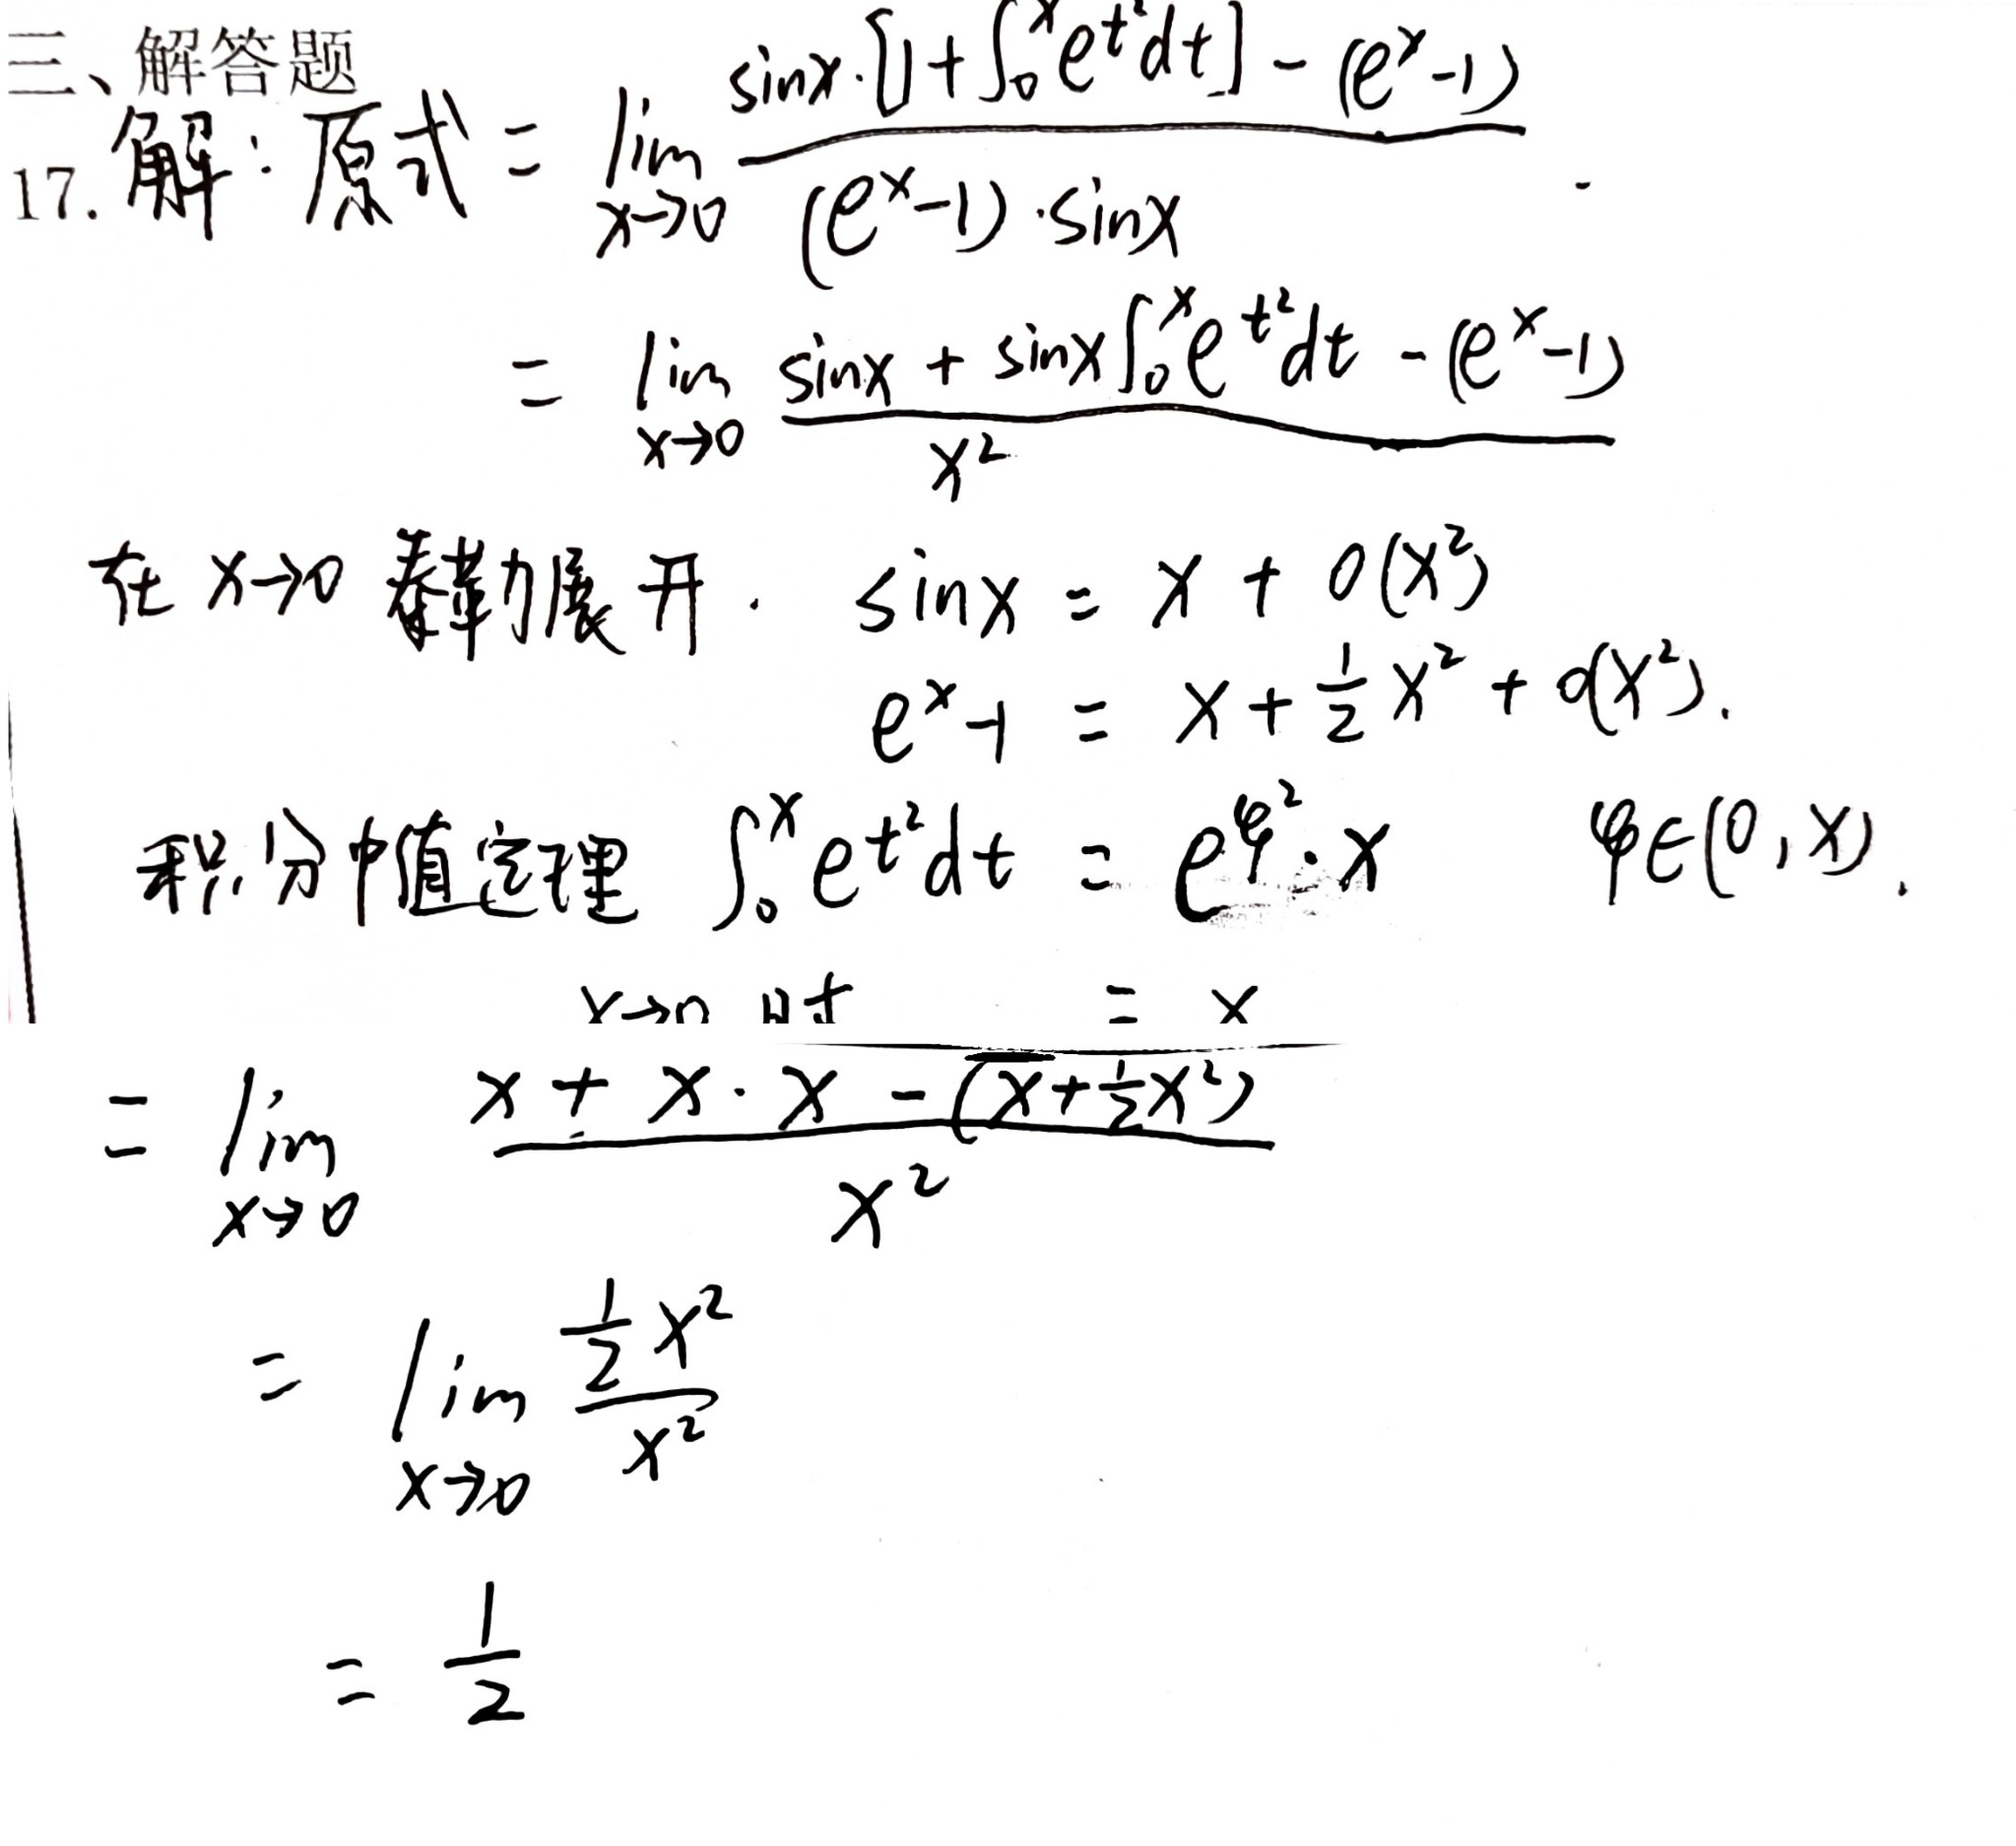 三、解答题
17. 解：原式 = lim x→0 (sinx·[1+∫₀ˣ e^t² dt] - (e^x-1)) / ((e^x-1)·sinx)
= lim x→0 (sinx + sinx∫₀ˣ e^t² dt - (e^x-1)) / x²
在 x→0 泰勒展开. sinx = x + o(x²)
e^x-1 = x + 1/2 x² + o(x²).
积分中值定理 ∫₀ˣ e^t² dt = e^φ²·x φ∈(0,x).
x→0 时 = x
= lim x→0 (x + x·x - (x+1/2x²)) / x²
= lim x→0 (1/2 x²) / x²
= 1/2